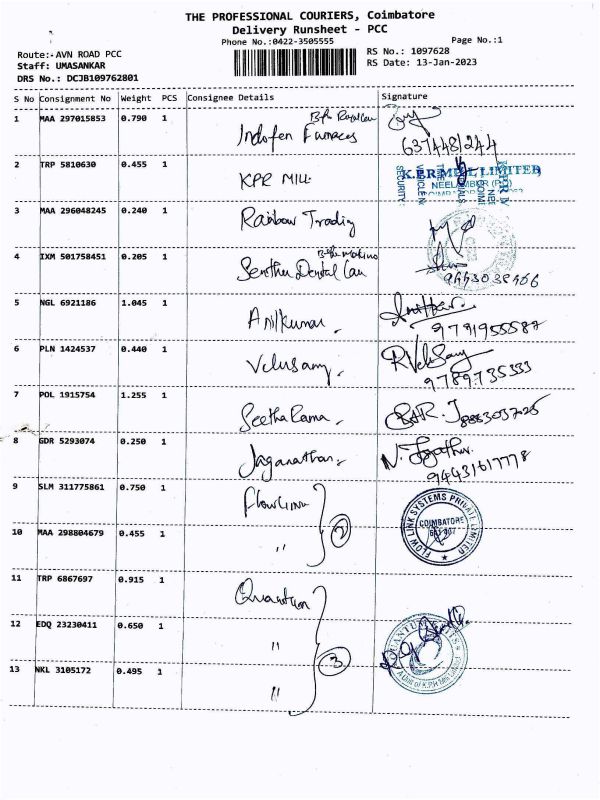 THE PROFESSIONAL COURIERS, Coimbatore
Delivery Runsheet - PCC
Phone No.:0422-3505555
Page No.:1
Route:- AVN ROAD PCC
RS No.: 1097628
Staff: UMASANKAR
RS Date: 13-Jan-2023
DRS No.: DCJB109762801
S No Consignment No Weight PCS Consignee Details Signature
1 MAA 297015853 0.790 1 Indofen Furnaces
6374481244
2 TRP 5810630 0.455 1 KPR MILL
K.P.R MILL LIMITED
3 MAA 296048245 0.240 1 Rainbow Trading
4 IXM 501758451 0.205 1 Senthu Dental Lau
5 NGL 6921186 1.045 1 Anilkumar
9791955587
6 PLN 1424537 0.440 1 Velusamy
9789735333
7 POL 1915754 1.255 1 Seetharama
8 GDR 5293074 0.250 1 Jaganathan
9443161 7778
9 SLM 311775861 0.750 1 Flowlink
FLOW LINK SYSTEMS PRIVATE LIMITED
COIMBATORE
641 407
10 MAA 298804679 0.455 1 "
2
11 TRP 6867697 0.915 1 Quantum
12 EDQ 23230411 0.650 1 "
3
13 NKL 3105172 0.495 1 "